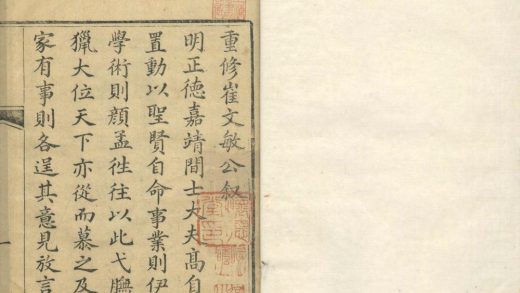 重修崔文敏公叙
明正德嘉靖間士大夫高自
置動以聖賢自命事業則伊
學術則顏孟徃徃以此弋膴
獵大位天下亦從而慕之及
家有事則各逞其意見放言